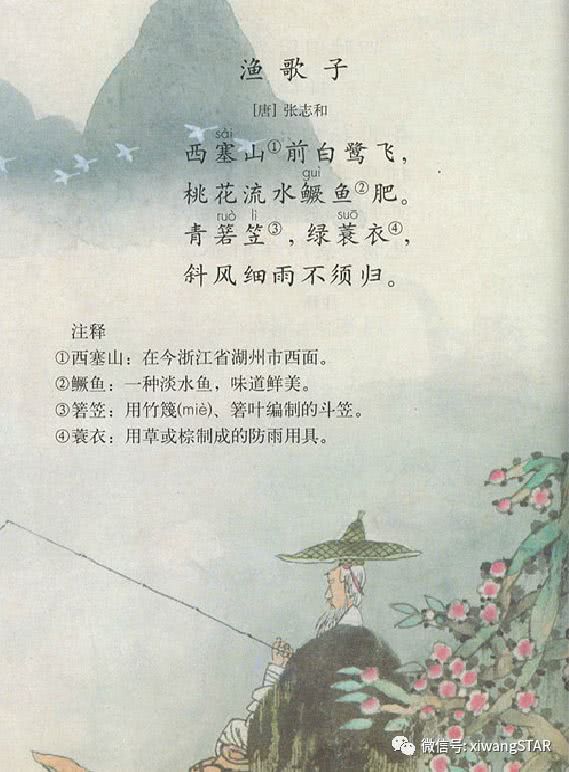 渔歌子
[唐] 张志和
sài
西塞山①前白鹭飞，
guì
桃花流水鳜鱼②肥。
ruò lì suō
青箬笠③，绿蓑衣④，
斜风细雨不须归。
注释
①西塞山：在今浙江省湖州市西面。
②鳜鱼：一种淡水鱼，味道鲜美。
③箬笠：用竹篾(miè)、箬叶编制的斗笠。
④蓑衣：用草或棕制成的防雨用具。
微信号: xiwangSTAR